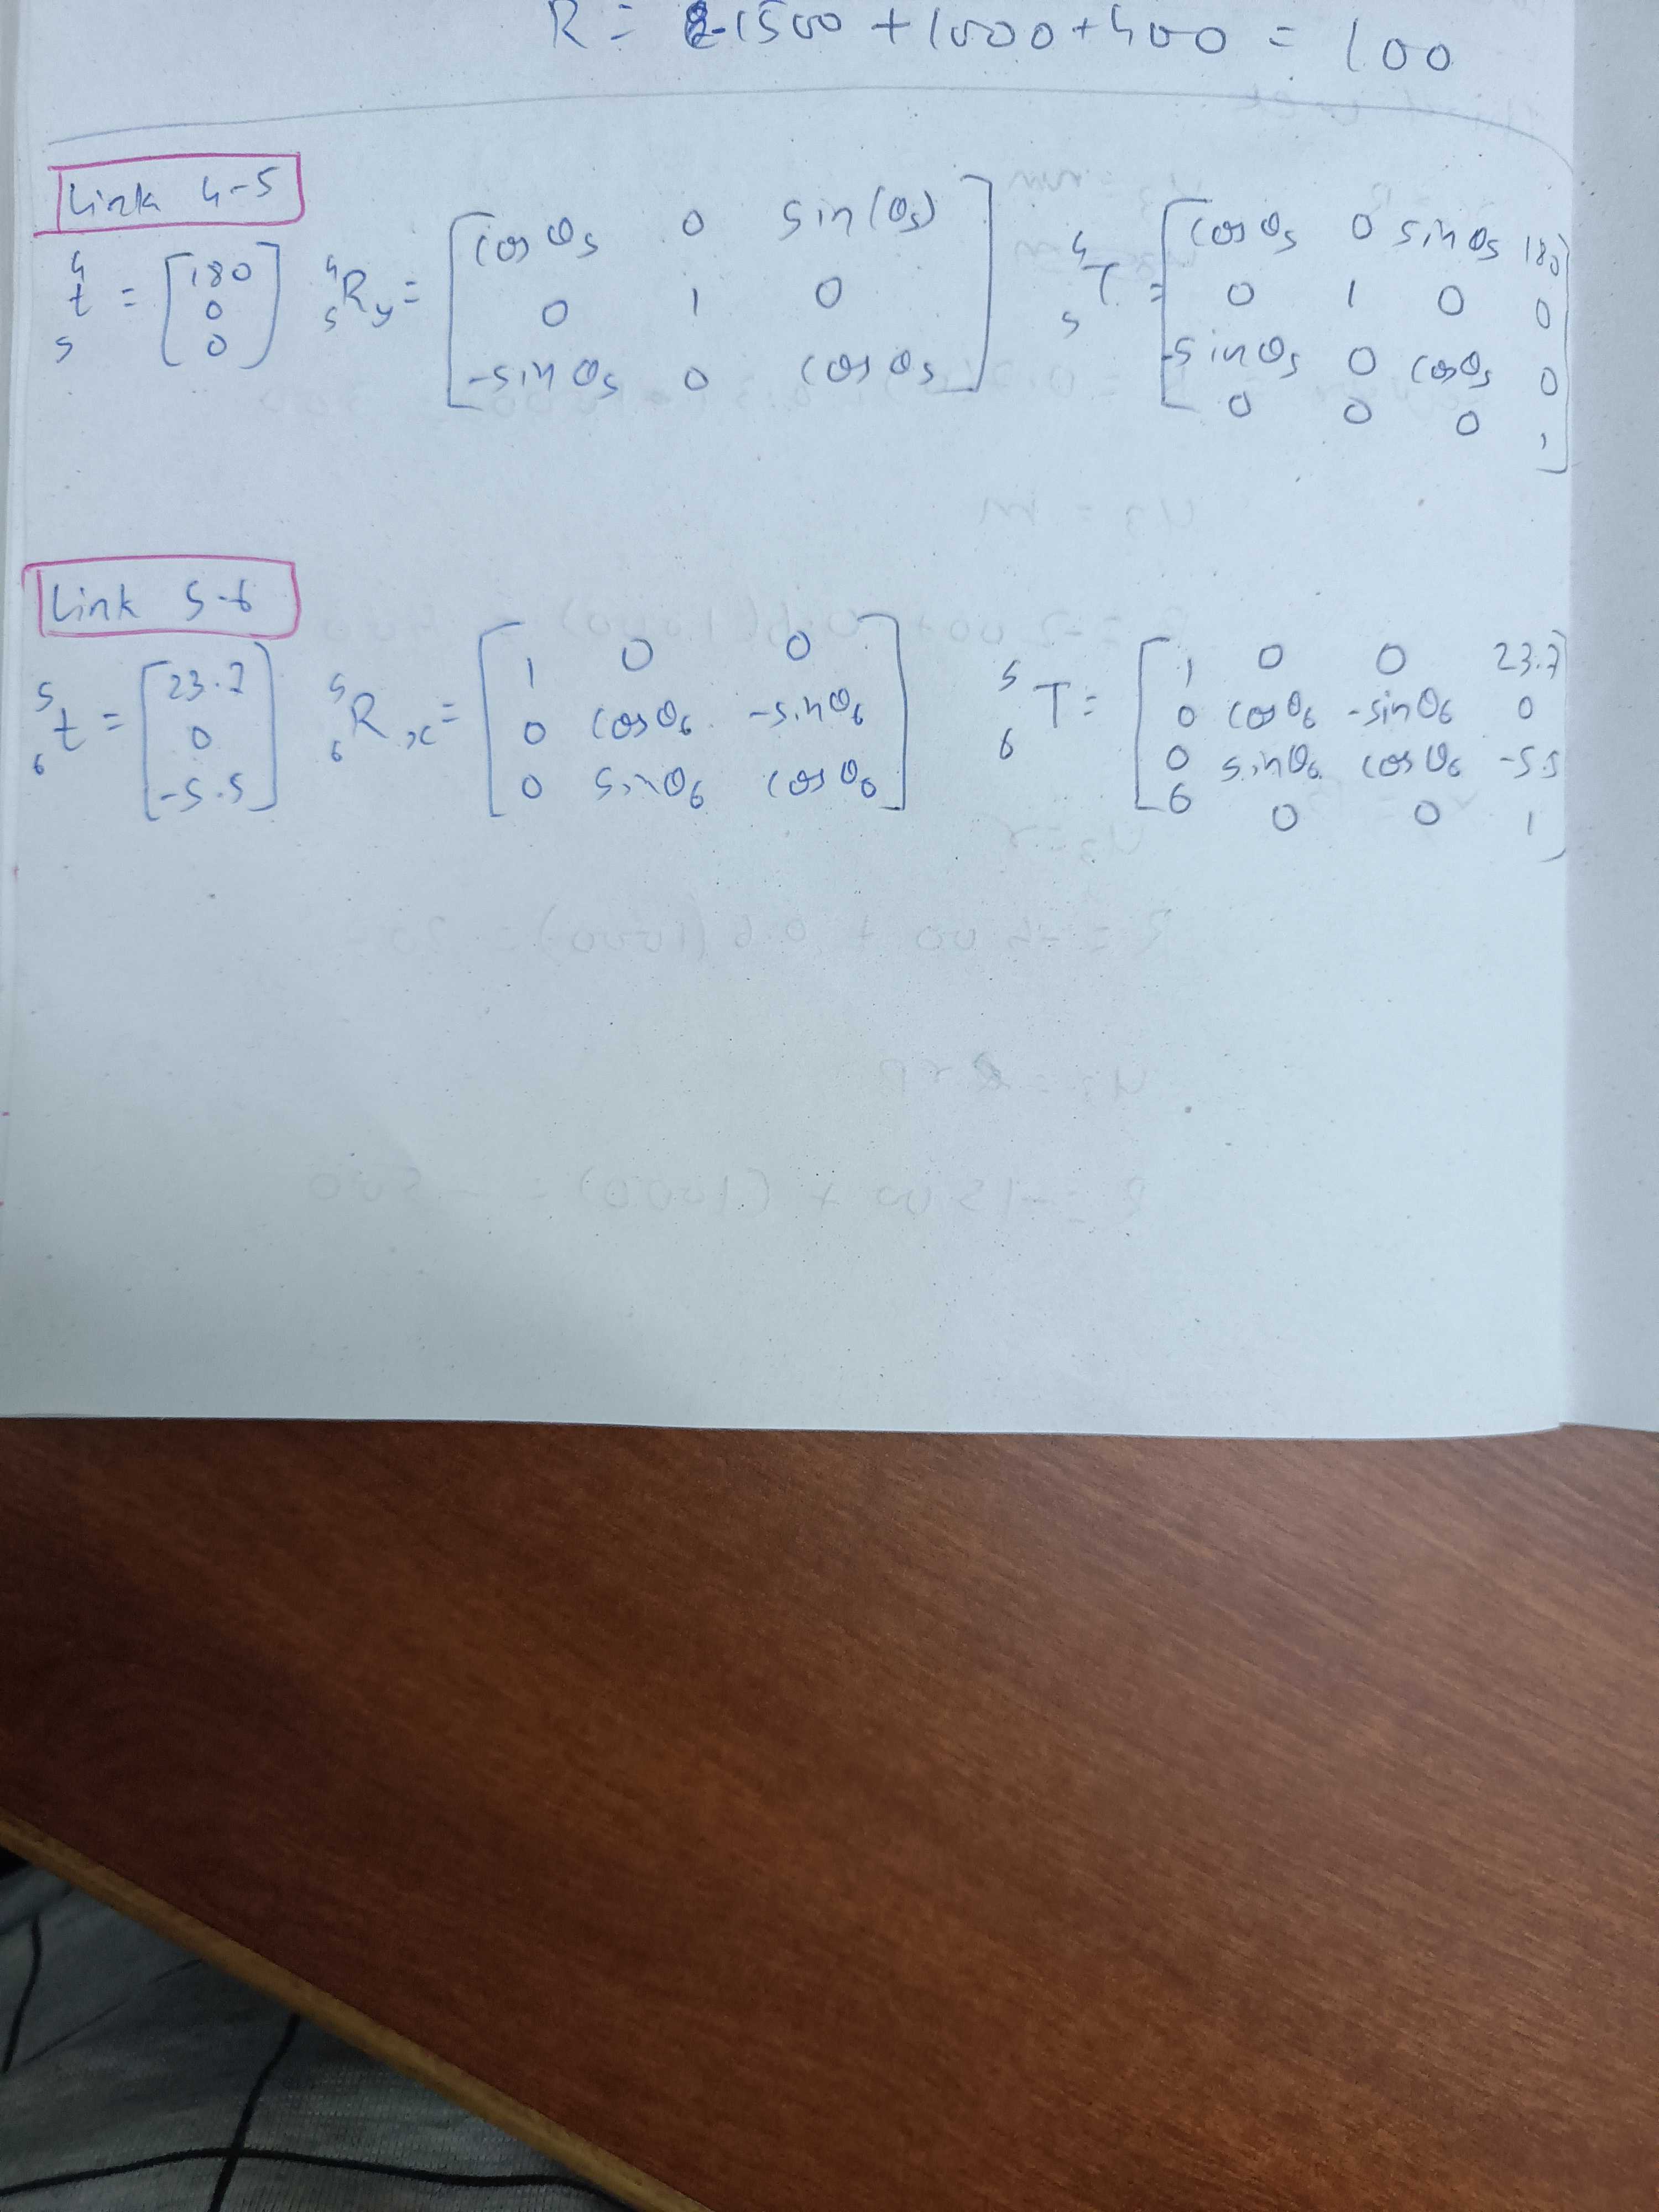 R = -1500 + 1000 + 400 = 100
Link 4-5
⁴₅t = [180 0 0] ⁴₅Ry = [cosθ₅ 0 sin(θ₅) 0 1 0 -sinθ₅ 0 cosθ₅] ⁴₅T = [cosθ₅ 0 sinθ₅ 180 0 1 0 0 -sinθ₅ 0 cosθ₅ 0 0 0 0 1]
Link 5-6
⁵₆t = [23.7 0 -5.5] ⁵₆Rx = [1 0 0 0 cosθ₆ -sinθ₆ 0 sinθ₆ cosθ₆] ⁵₆T = [1 0 0 23.7 0 cosθ₆ -sinθ₆ 0 0 sinθ₆ cosθ₆ -5.5 0 0 0 1]